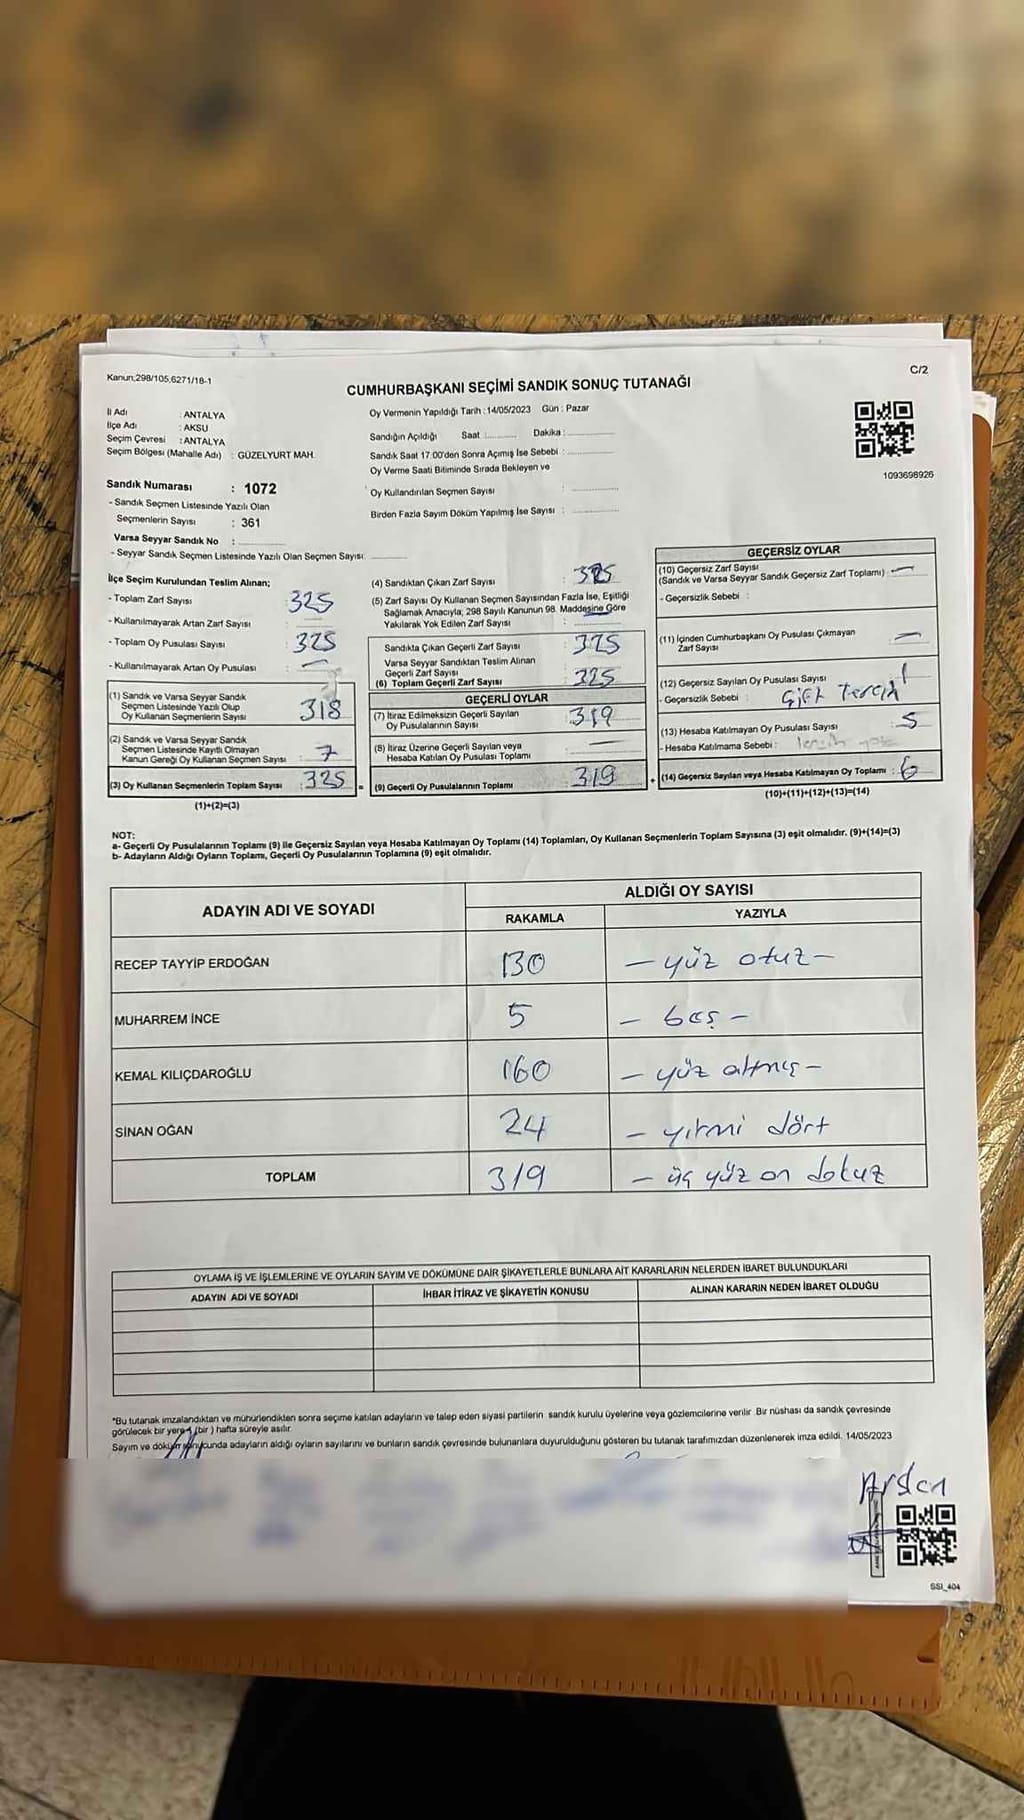 Kanun:298/105,6271/18-1
C/2
CUMHURBAŞKANI SEÇİMİ SANDIK SONUÇ TUTANAĞI
İli Adı : ANTALYA
İlçe Adı : AKSU
Seçim Çevresi : ANTALYA
Seçim Bölgesi (Mahalle Adı) : GÜZELYURT MAH.
Sandık Numarası : 1072
- Sandık Seçmen Listesinde Yazılı Olan
Seçmenlerin Sayısı : 361
Varsa Seyyar Sandık No :
- Seyyar Sandık Seçmen Listesinde Yazılı Olan Seçmen Sayısı:
Oy Vermenin Yapıldığı Tarih : 14/05/2023 Gün : Pazar
Sandığın Açıldığı Saat : Dakika :
Sandık Saat 17:00'den Sonra Açımış İse Sebebi :
Oy Verme Saati Bitiminde Sırada Bekleyen ve
Oy Kullandırılan Seçmen Sayısı :
Birden Fazla Sayım Döküm Yapılmış İse Sayısı :
1093698926
İlçe Seçim Kurulundan Teslim Alınan;
- Toplam Zarf Sayısı 325
- Kullanılmayarak Artan Zarf Sayısı :
- Toplam Oy Pusulası Sayısı 325
- Kullanılmayarak Artan Oy Pusulası : —
(1) Sandık ve Varsa Seyyar Sandık
Seçmen Listesinde Yazılı Olup
Oy Kullanan Seçmenlerin Sayısı : 318
(2) Sandık ve Varsa Seyyar Sandık
Seçmen Listesinde Kayıtlı Olmayan
Kanun Gereği Oy Kullanan Seçmen Sayısı : 7
(3) Oy Kullanan Seçmenlerin Toplam Sayısı : 325
(1)+(2)=(3)
(4) Sandıktan Çıkan Zarf Sayısı : 325
(5) Zarf Sayısı Oy Kullanan Seçmen Sayısından Fazla İse, Eşitliği
Sağlamak Amacıyla; 298 Sayılı Kanunun 98. Maddesine Göre
Yakılarak Yok Edilen Zarf Sayısı :
Sandıkta Çıkan Geçerli Zarf Sayısı : 325
Varsa Seyyar Sandıktan Teslim Alınan
Geçerli Zarf Sayısı
(6) Toplam Geçerli Zarf Sayısı : 325
GEÇERLİ OYLAR
(7) İtiraz Edilmeksizin Geçerli Sayılan
Oy Pusulalarının Sayısı : 319
(8) İtiraz Üzerine Geçerli Sayılan veya
Hesaba Katılan Oy Pusulası Toplamı : —
= (9) Geçerli Oy Pusulalarının Toplamı : 319
GEÇERSİZ OYLAR
(10) Geçersiz Zarf Sayısı
(Sandık ve Varsa Seyyar Sandık Geçersiz Zarf Toplamı) : —
- Geçersizlik Sebebi :
(11) İçinden Cumhurbaşkanı Oy Pusulası Çıkmayan
Zarf Sayısı : —
(12) Geçersiz Sayılan Oy Pusulası Sayısı : 1
- Geçersizlik Sebebi : Çift Tercih
(13) Hesaba Katılmayan Oy Pusulası Sayısı : 5
- Hesaba Katılmama Sebebi :
+ (14) Geçersiz Sayılan veya Hesaba Katılmayan Oy Toplamı : 6
(10)+(11)+(12)+(13)=(14)
NOT:
a- Geçerli Oy Pusulalarının Toplamı (9) ile Geçersiz Sayılan veya Hesaba Katılmayan Oy Toplamı (14) Toplamları, Oy Kullanan Seçmenlerin Toplam Sayısına (3) eşit olmalıdır. (9)+(14)=(3)
b- Adayların Aldığı Oyların Toplamı, Geçerli Oy Pusulalarının Toplamına (9) eşit olmalıdır.
ADAYIN ADI VE SOYADI
ALDIĞI OY SAYISI
RAKAMLA YAZIYLA
RECEP TAYYİP ERDOĞAN 130 — yüz otuz —
MUHARREM İNCE 5 — beş —
KEMAL KILIÇDAROĞLU 160 — yüz altmış —
SİNAN OĞAN 24 — yirmi dört
TOPLAM 319 — üç yüz on dokuz
OYLAMA İŞ VE İŞLEMLERİNE VE OYLARIN SAYIM VE DÖKÜMÜNE DAİR ŞİKAYETLERLE BUNLARA AİT KARARLARIN NELERDEN İBARET BULUNDUKLARI
ADAYIN ADI VE SOYADI İHBAR İTİRAZ VE ŞİKAYETİN KONUSU ALINAN KARARIN NEDEN İBARET OLDUĞU
*Bu tutanak imzalandıktan ve mühürlendikten sonra seçime katılan adayların ve talep eden siyasi partilerin sandık kurulu üyelerine veya gözlemcilerine verilir. Bir nüshası da sandık çevresinde
görülecek bir yere 1 (bir) hafta süreyle asılır.
Sayım ve döküm sonucunda adayların aldığı oyların sayılarını ve bunların sandık çevresinde bulunanlara duyurulduğunu gösteren bu tutanak tarafımızdan düzenlenerek imza edildi. 14/05/2023
Arslan
SSI_404